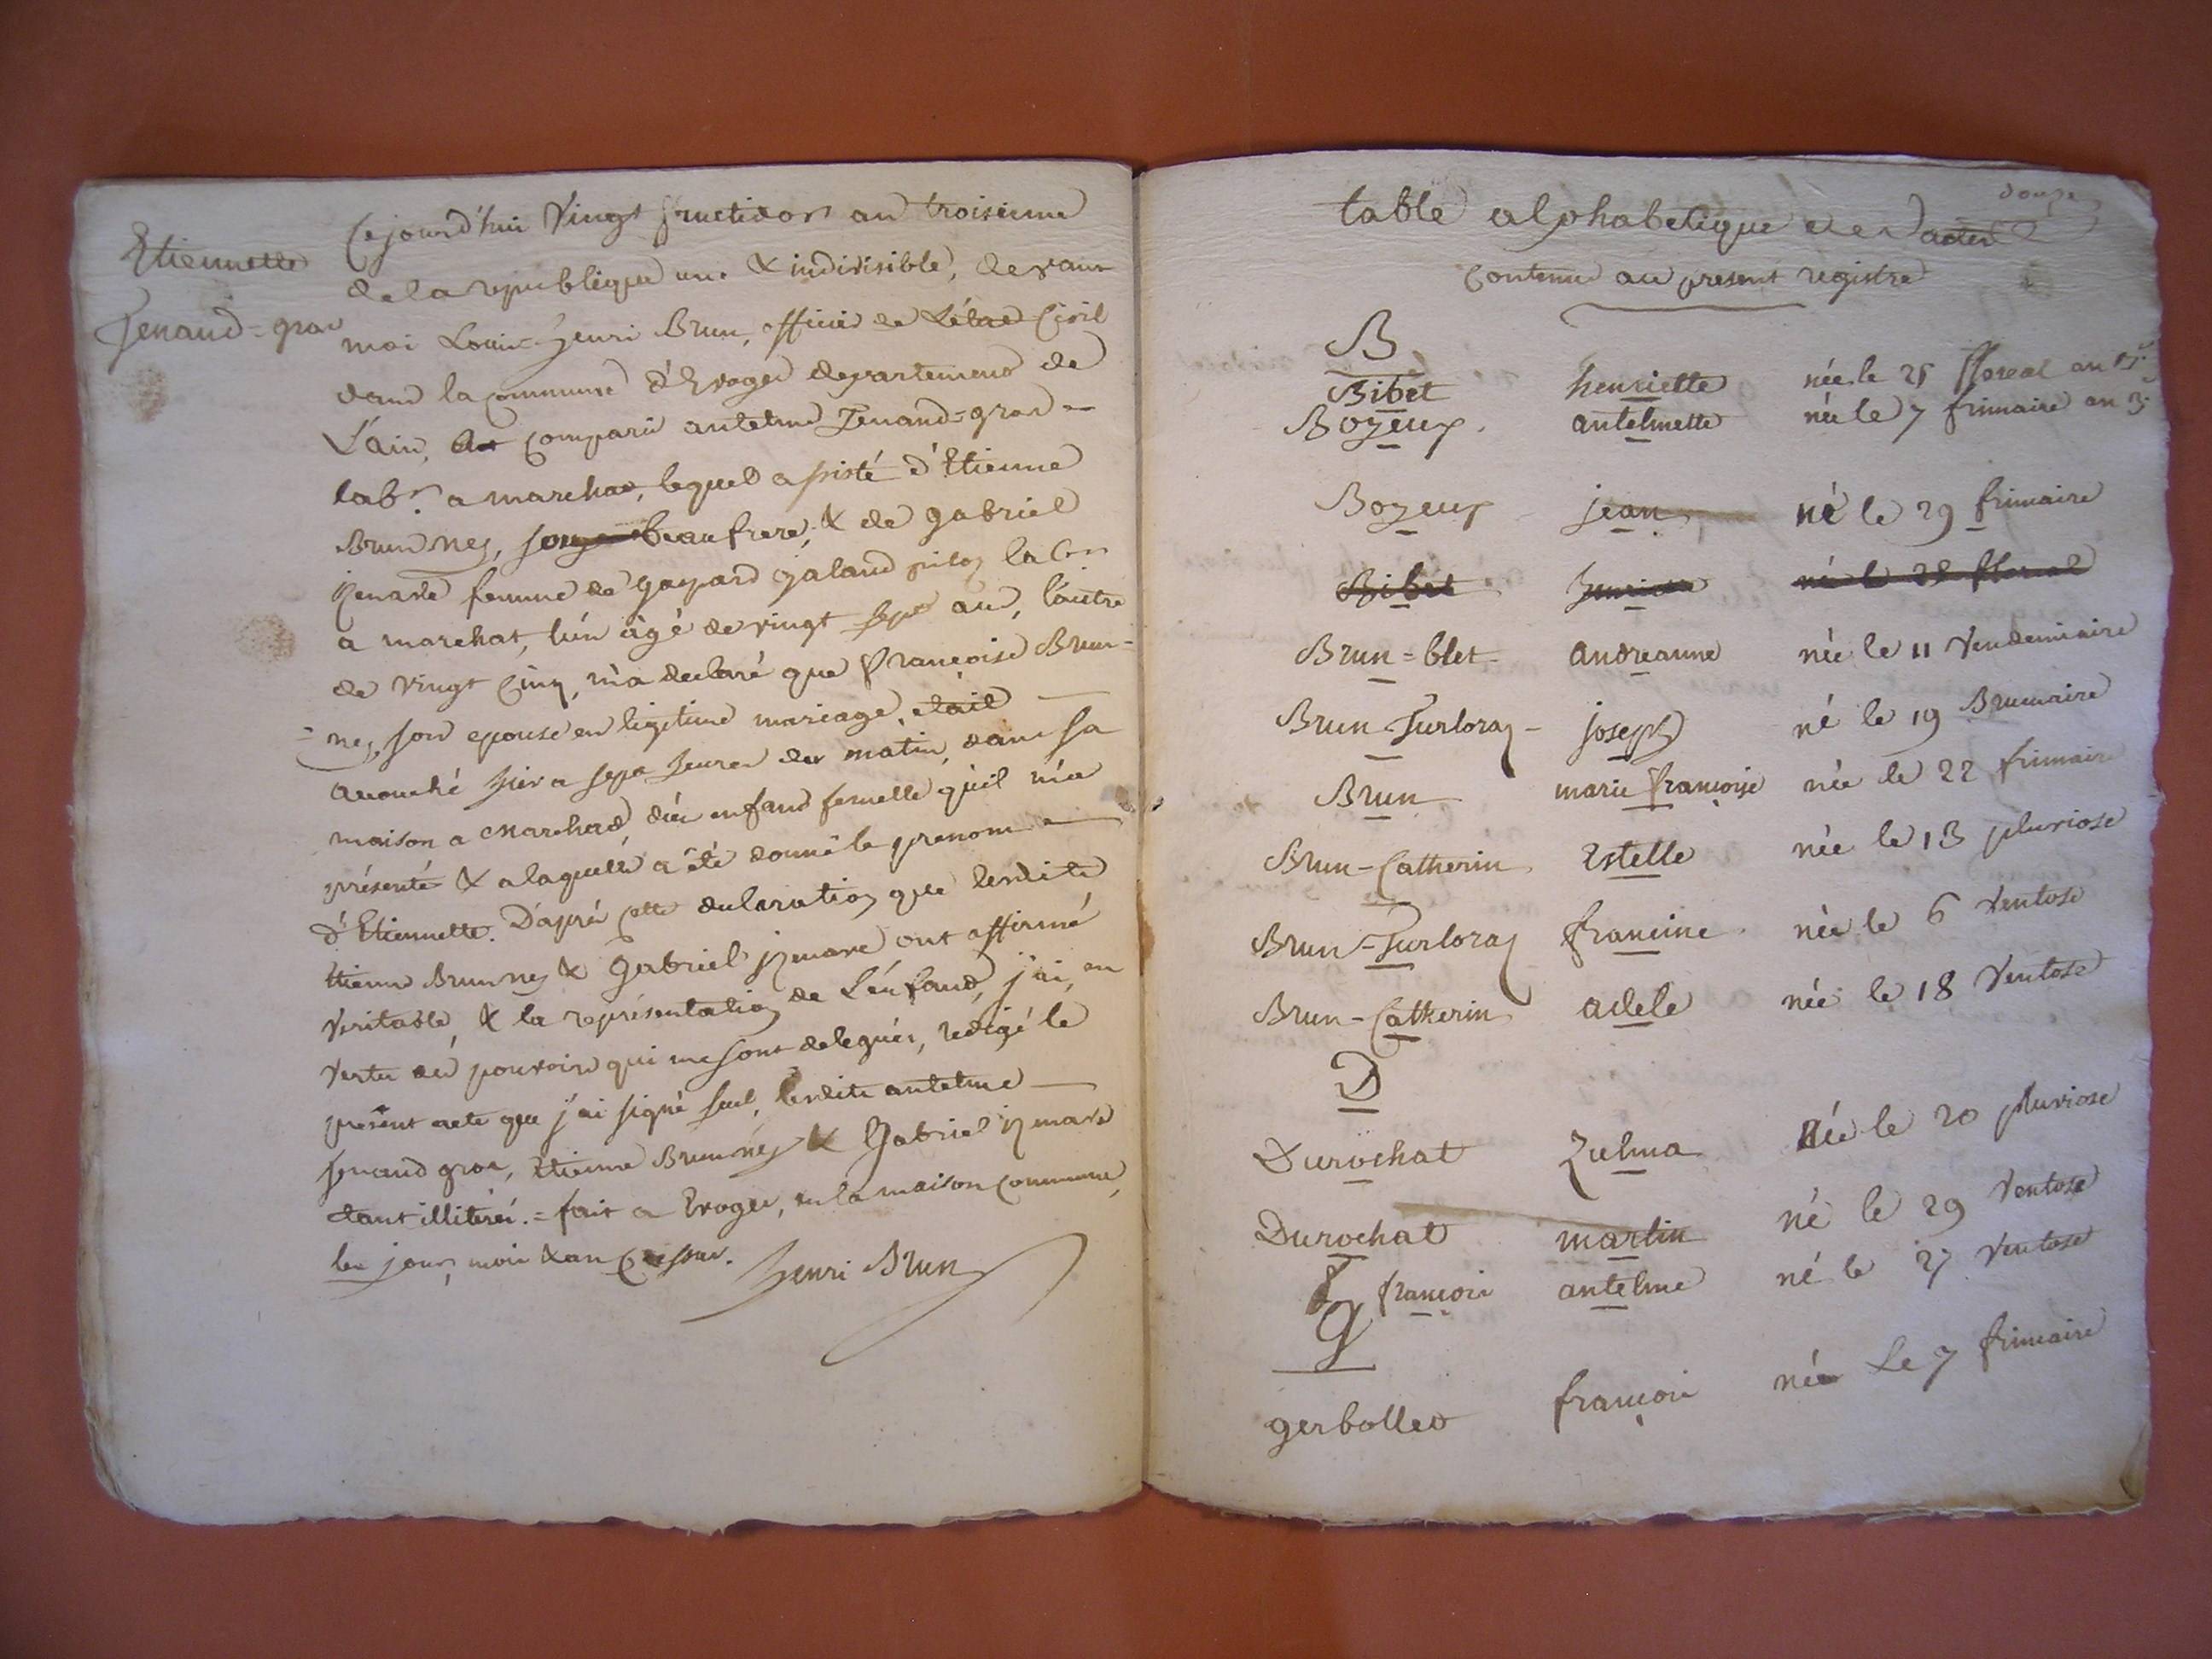 Etiennette
Cejourd'hui vingt fructidor an troisieme
de la republique une & indivisible, devant
moi Louis henri Brun, officier de L'état Civil
dans la commune d'Evoges departement de
L'ain, Est comparu antelme Jenand=gros
labr. a marchat, lequel assisté d'Etienne
Brun ney, beaufrere, & de gabriel
femme de gaspard galand
a marchat, l'un âgé de vingt sept ans, l'autre
de vingt Cinq, m'a declaré que françoise Brun=
=ney, son epouse en legitime mariage, etait
acouché hier a sept heures du matin, dans sa
maison a Marchat, d'un enfant femelle qu'il m'a
présenté & a laquelle a été donné le prenom
d'Etiennette. D'après cette declaration que lesdits
Etienne Brun ney & Gabriel ont affirmé
veritable, & la représentation de L'enfant, j'ai, en
vertu des pouvoirs qui me sont delegués, redigé le
présent acte que j'ai signé seul, lesdits antelme
Jenand gros, Etienne Brun ney & Gabriel
etant illiterés. = fait a Evoges, en la maison commune,
les jour, mois & an
henri Brun
Jenand=gros
douze
table alphabetique des actes
Contenu au present registre
B
Bibet henriette née le 25 floreal an 3e
Bozeux antelmette née le 7 frimaire an 3
Bozeux jean né le 29 frimaire
Bibet henriette née le 25 floreal
Brun=blet andreanne née le 11 vendemiaire
Brun-Turloray joseph né le 19 Brumaire
Brun marie françoise née le 22 frimaire
Brun-Catherin Estelle née le 13 pluviose
Brun-Turloray francine née le 6 ventose
Brun-Catherin adele née le 18 ventose
D
Durochat Zulma née le 20 pluviose
Durochat martin né le 29 ventose
françois antelme né le 27 ventose
g
gerbollet françois né Le 7 frimaire